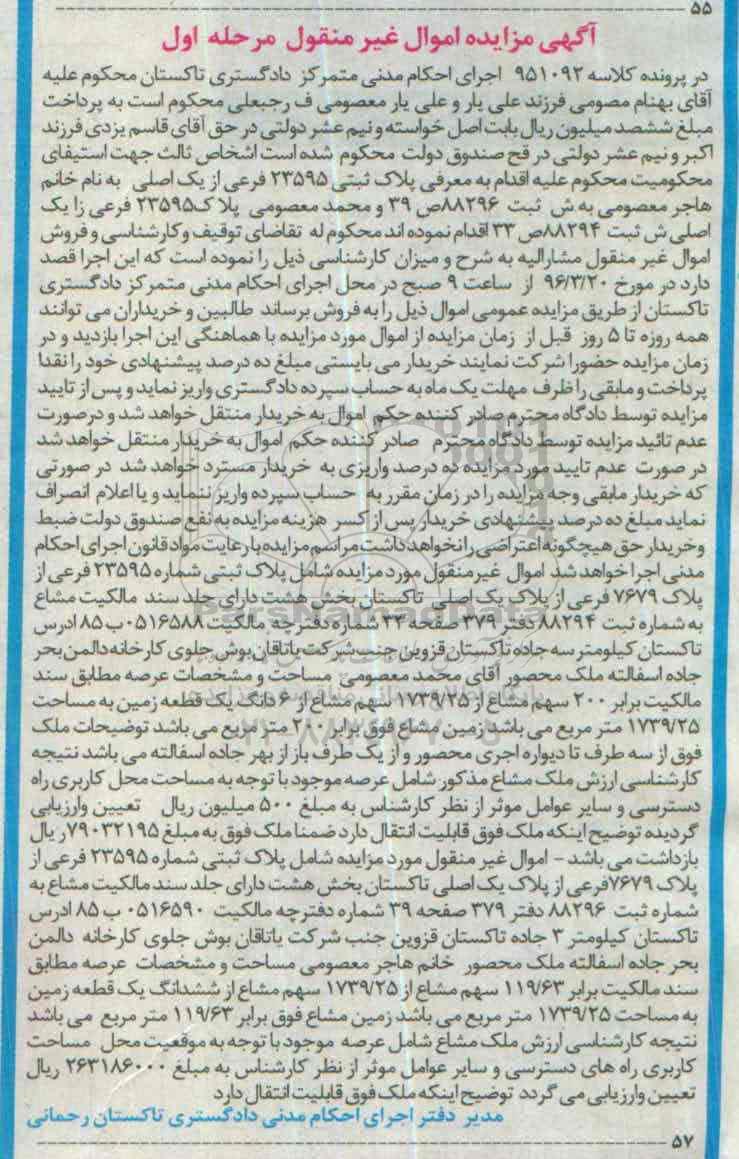 ۵۵
آگهی مزایده اموال غیر منقول مرحله اول
در پرونده کلاسه ۹۵۱۰۹۲ اجرای احکام مدنی متمرکز دادگستری تاکستان محکوم علیه
آقای بهنام مصومی فرزند علی یار و علی یار معصومی ف رجبعلی محکوم است به پرداخت
مبلغ ششصد میلیون ریال بابت اصل خواسته و نیم عشر دولتی در حق آقای قاسم یزدی فرزند
اکبر و نیم عشر دولتی در قح صندوق دولت محکوم شده است اشخاص ثالث جهت استیفای
محکومیت محکوم علیه اقدام به معرفی پلاک ثبتی ۲۳۵۹۵ فرعی از یک اصلی به نام خانم
هاجر معصومی به ش ثبت ۸۸۲۹۶ص ۳۹ و محمد معصومی پلا ک۲۳۵۹۵ فرعی زا یک
اصلی ش ثبت ۸۸۲۹۴ص ۳۳ اقدام نموده اند محکوم له تقاضای توقیف و کارشناسی و فروش
اموال غیر منقول مشارالیه به شرح و میزان کارشناسی ذیل را نموده است که این اجرا قصد
دارد در مورخ ۹۶/۳/۲۰ از ساعت ۹ صبح در محل اجرای احکام مدنی متمرکز دادگستری
تاکستان از طریق مزایده عمومی اموال ذیل را به فروش برساند طالبین و خریداران می توانند
همه روزه تا ۵ روز قبل از زمان مزایده از اموال مورد مزایده با هماهنگی این اجرا بازدید و در
زمان مزایده حضورا شرکت نمایند خریدار می بایستی مبلغ ده درصد پیشنهادی خود را نقدا
پرداخت و مابقی را ظرف مهلت یک ماه به حساب سپرده دادگستری واریز نماید و پس از تایید
مزایده توسط دادگاه محترم صادر کننده حکم اموال به خریدار منتقل خواهد شد و درصورت
عدم تائید مزایده توسط دادگاه محترم صادر کننده حکم اموال به خریدار منتقل خواهد شد
در صورت عدم تایید مورد مزایده ده درصد واریزی به خریدار مسترد خواهد شد در صورتی
که خریدار مابقی وجه مزایده را در زمان مقرر به حساب سپرده واریز ننماید و یا اعلام انصراف
نماید مبلغ ده درصد پیشنهادی خریدار پس از کسر هزینه مزایده به نفع صندوق دولت ضبط
وخریدار حق هیچگونه اعتراضی را نخواهد داشت مراسم مزایده با رعایت مواد قانون اجرای احکام
مدنی اجرا خواهد شد اموال غیرمنقول مورد مزایده شامل پلاک ثبتی شماره ۲۳۵۹۵ فرعی از
پلاک ۷۶۷۹ فرعی از پلاک یک اصلی تاکستان بخش هشت دارای جلد سند مالکیت مشاع
به شماره ثبت ۸۸۲۹۴ دفتر ۳۷۹ صفحه ۳۳ شماره دفترچه مالکیت ۰۵۱۶۵۸۸ ب ۸۵ ادرس
تاکستان کیلومتر سه جاده تاکستان قزوین جنب شرکت یاتاقان بوش جلوی کارخانه دالمن بحر
جاده اسفالته ملک محصور آقای محمد معصومی مساحت و مشخصات عرصه مطابق سند
مالکیت برابر ۲۰۰ سهم مشاع از ۱۷۳۹/۲۵ سهم مشاع از ۶ دانگ یک قطعه زمین به مساحت
۱۷۳۹/۲۵ متر مربع می باشد زمین مشاع فوق برابر ۲۰۰ متر مربع می باشد توضیحات ملک
فوق از سه طرف تا دیواره اجری محصور و از یک طرف باز از بهر جاده اسفالته می باشد نتیجه
کارشناسی ارزش ملک مشاع مذکور شامل عرصه موجود با توجه به مساحت محل کاربری راه
دسترسی و سایر عوامل موثر از نظر کارشناس به مبلغ ۵۰۰ میلیون ریال تعیین وارزیابی
گردیده توضیح اینکه ملک فوق قابلیت انتقال دارد ضمنا ملک فوق به مبلغ ۷۹۰۳۲۱۹۵ر یال
بازداشت می باشد - اموال غیر منقول مورد مزایده شامل پلاک ثبتی شماره ۲۳۵۹۵ فرعی از
پلاک ۷۶۷۹فرعی از پلاک یک اصلی تاکستان بخش هشت دارای جلد سند مالکیت مشاع به
شماره ثبت ۸۸۲۹۶ دفتر ۳۷۹ صفحه ۳۹ شماره دفترچه مالکیت ۰۵۱۶۵۹۰ ب ۸۵ ادرس
تاکستان کیلومتر ۳ جاده تاکستان قزوین جنب شرکت یاتاقان بوش جلوی کارخانه دالمن
بحر جاده اسفالته ملک محصور خانم هاجر معصومی مساحت و مشخصات عرصه مطابق
سند مالکیت برابر ۱۱۹/۶۳ سهم مشاع از ۱۷۳۹/۲۵ سهم مشاع از ششدانگ یک قطعه زمین
به مساحت ۱۷۳۹/۲۵ متر مربع می باشد زمین مشاع فوق برابر ۱۱۹/۶۳ متر مربع می باشد
نتیجه کارشناسی ارزش ملک مشاع شامل عرصه موجود با توجه به موقعیت محل مساحت
کاربری راه های دسترسی و سایر عوامل موثر از نظر کارشناس به مبلغ ۲۶۳۱۸۶۰۰۰ ریال
تعیین وارزیابی می گردد توضیح اینکه ملک فوق قابلیت انتقال دارد
مدیر دفتر اجرای احکام مدنی دادگستری تاکستان رحمانی
۵۷
ParsNamadData